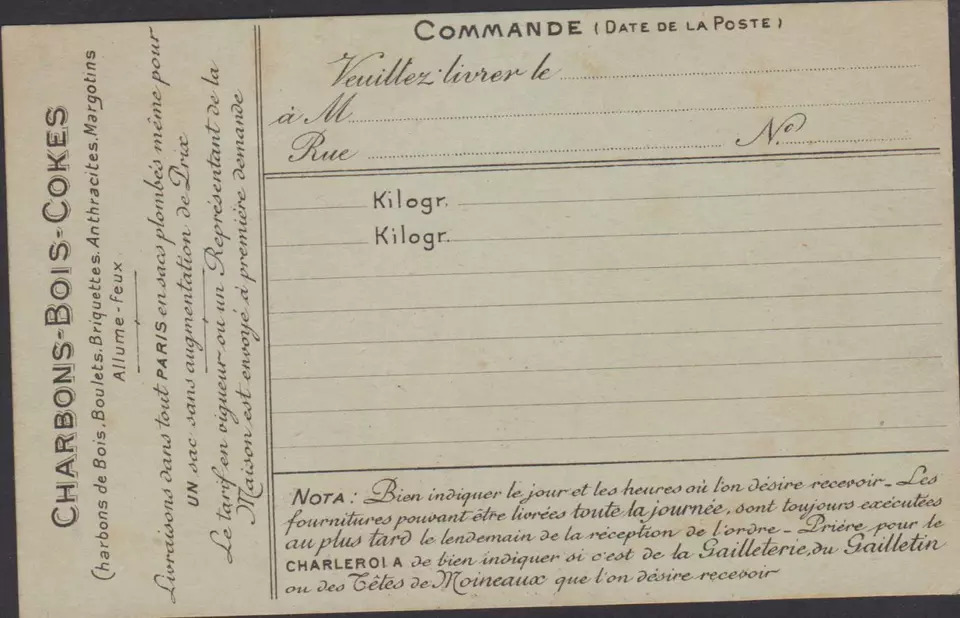 CHARBONS-BOIS-COKES
Charbons de Bois.Boulets.Briquettes.Anthracites.Margotins
Allume-Feux
Livraisons dans tout PARIS en sacs plombés même pour
UN sac sans augmentation de Prix
Le tarif en vigueur ou un Représentant de la
Maison est envoyé à première demande
COMMANDE (DATE DE LA POSTE)
Veuillez livrer le
à M
Rue No
Kilogr.
Kilogr.
NOTA: Bien indiquer le jour et les heures où l'on désire recevoir - Les
fournitures pouvant être livrées toute la journée, sont toujours exécutées
au plus tard le lendemain de la réception de l'ordre - Prière pour le
CHARLEROI A de bien indiquer si c'est de la Gailleterie, du Gailletin
ou des Têtes de Moineaux que l'on désire recevoir